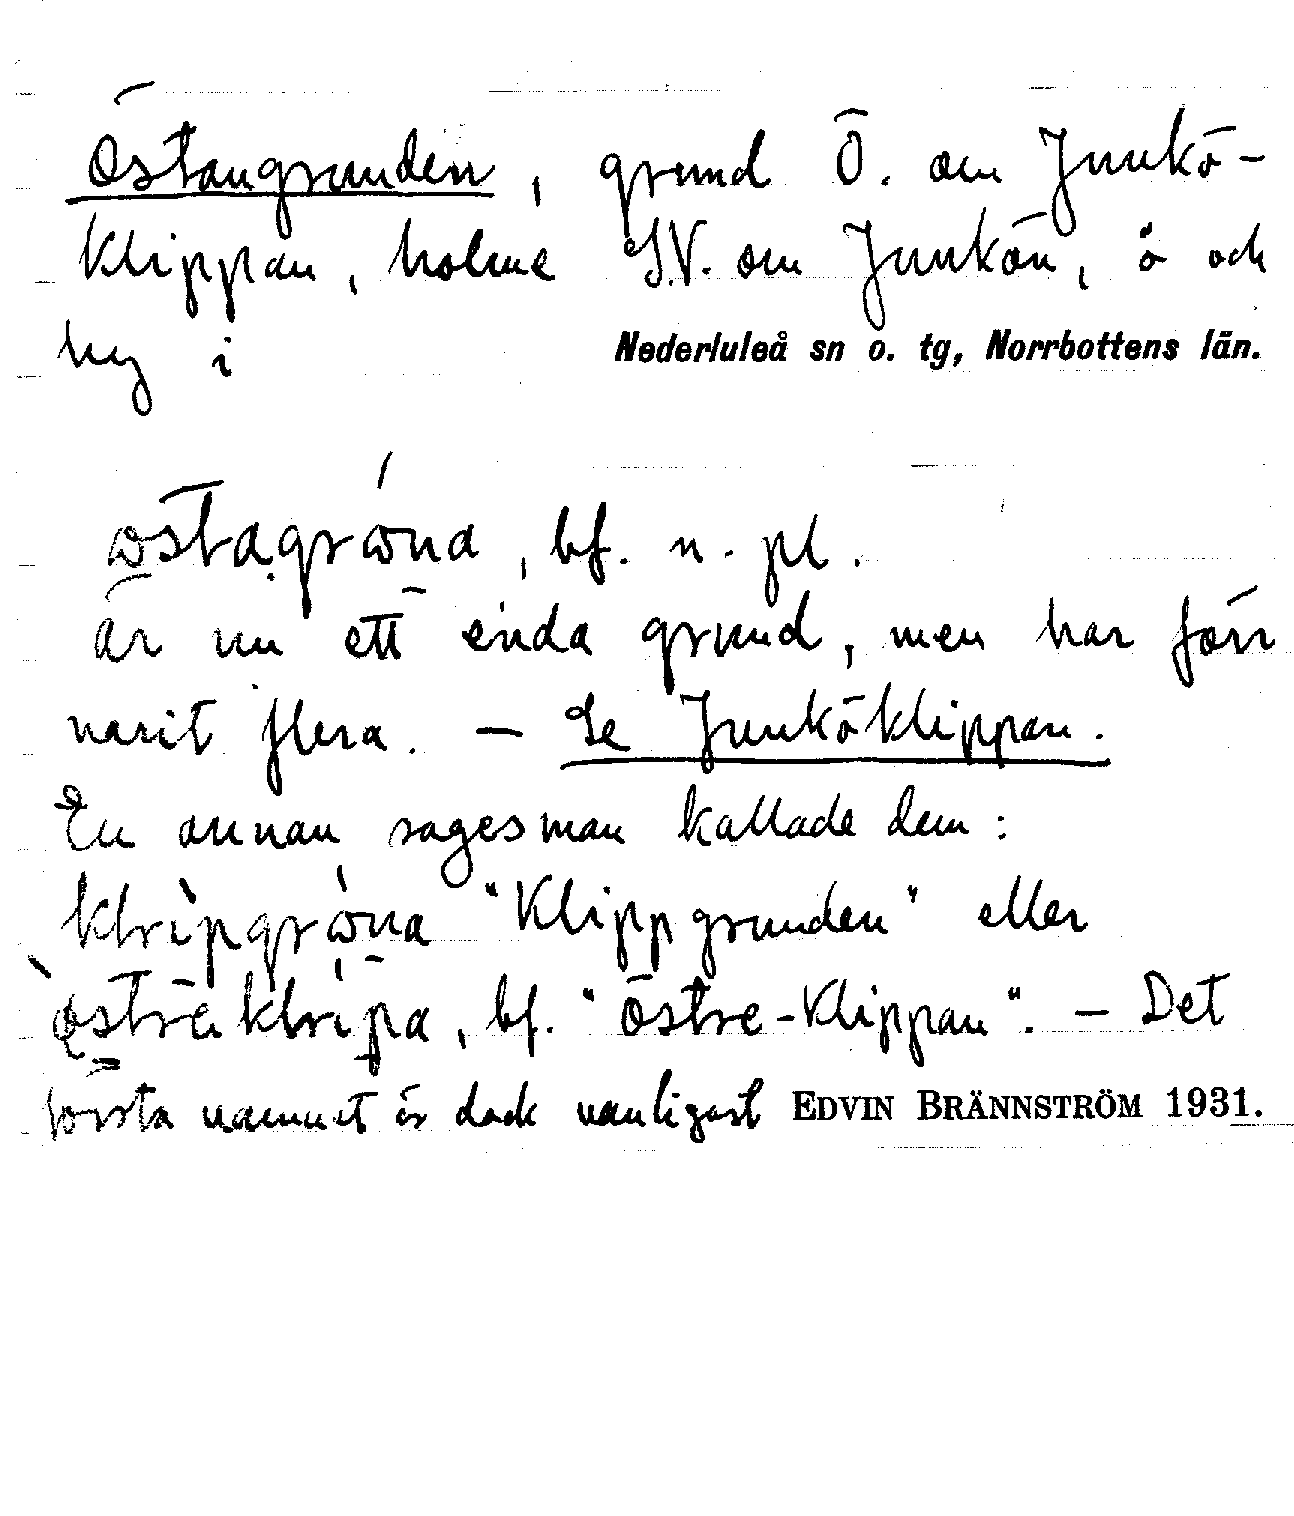 Östangrunden, grund Ö. om Junkö-
klippan, holme S.V. om Junkön, ö och
by i Nederluleå sn o. tg, Norrbottens län.
ɷstagrɷ́na, bf. n. pl.
är nu ett enda grund, men har förr
varit flera. — Se Junköklippan.
En annan sagesman kallade dem:
klripgrɷna "Klippgrunden" eller
östre klripa, bf. "Östre-Klippan". — Det
första namnet är dock vanligast EDVIN BRÄNNSTRÖM 1931.